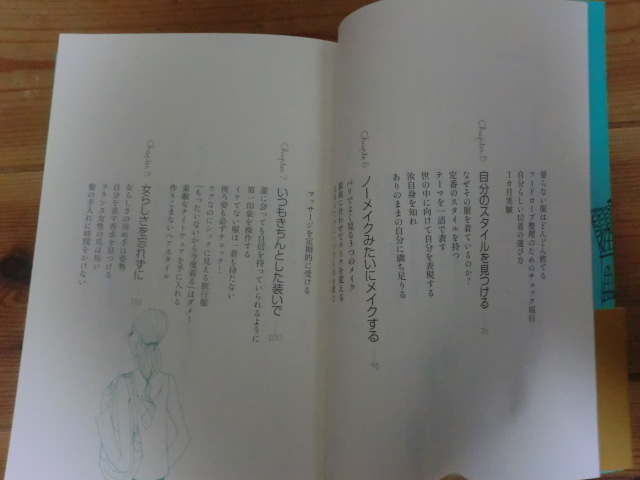 要らない服はどんどん捨てる
ワードローブ整理のためのチェック項目
自分らしい10着の選び方
1カ月実験
Chapter 5 自分のスタイルを見つける
なぜその服を着ているのか!
定番のスタイルを持つ
テーマを一語で表す
世の中に向けて自分を表現する
汝自身を知れ
ありのままの自分に満ち足りる
Chapter 6 ノーメイクみたいにメイクする
パリでよく見る3つのメイク
マッサージを定期的に受ける
Chapter 7 いつもきちんとした装いで 100
誰に会っても自信を持っていられるように
第一印象を操作する
イケてない服は一着も持たない
後ろ姿も必ずチェック!
ラクなのにシックに見える旅行服
「もったいないから今度着る」はダメ!
素敵なナイトウェアを手に入れる
作りこまないヘアスタイル
Chapter 女らしさを忘れずに
女らしさの決め手は姿勢
自分を表す香水を見つける
フランス女性の爪は短い
髪の手入れに時間をかけない